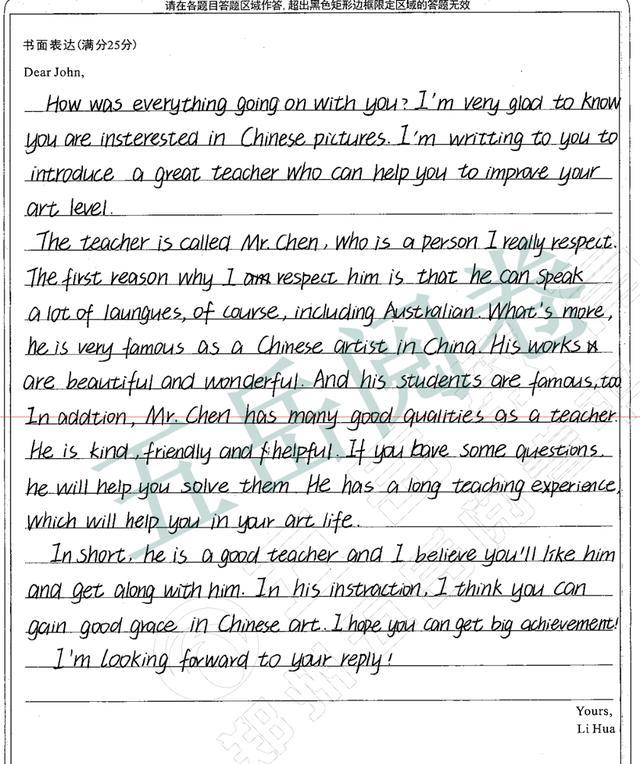 请在各题目答题区域作答,超出黑色矩形边框限定区域的答题无效
书面表达(满分25分)
Dear John,
How was everything going on with you? I'm very glad to know
you are insterested in Chinese pictures. I'm writting to you to
introduce a great teacher who can help you to improve your
art level.
The teacher is called Mr. Chen, who is a person I really respect.
The first reason why I am respect him is that he can speak
a lot of laungues, of course, including Australian. What's more,
he is very famous as a Chinese artist in China. His works
are beautiful and wonderful. And his students are famous, too
In addtion, Mr. Chen has many good qualities as a teacher.
He is kind, friendly and helpful. If you have some questions,
he will help you solve them. He has a long teaching experience,
which will help you in your art life.
In short, he is a good teacher and I believe you'll like him
and get along with him. In his instraction, I think you can
gain good grace in Chinese art. I hope you can get big achievement!
I'm looking forward to your reply!
Yours,
Li Hua
五岳阅卷